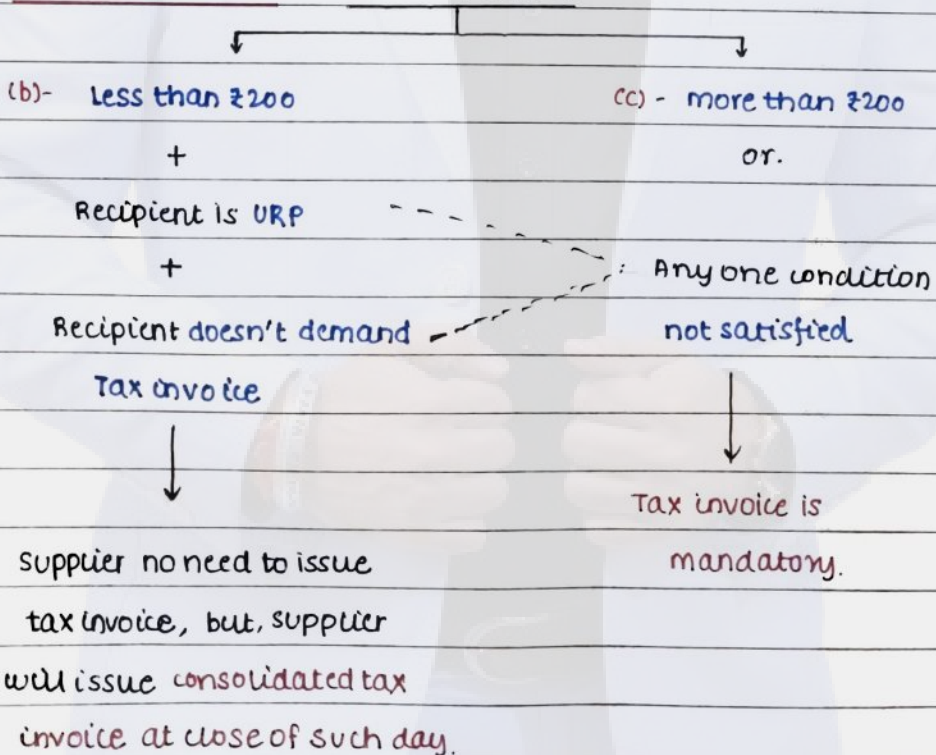 (b)- Less than ₹200
+
Recipient is URP
+
Recipient doesn't demand
Tax invoice
Supplier no need to issue
tax invoice, but, supplier
will issue consolidated tax
invoice at close of such day.
(c) - more than ₹200
or.
: Any one condition
not satisfied
Tax invoice is
mandatory.